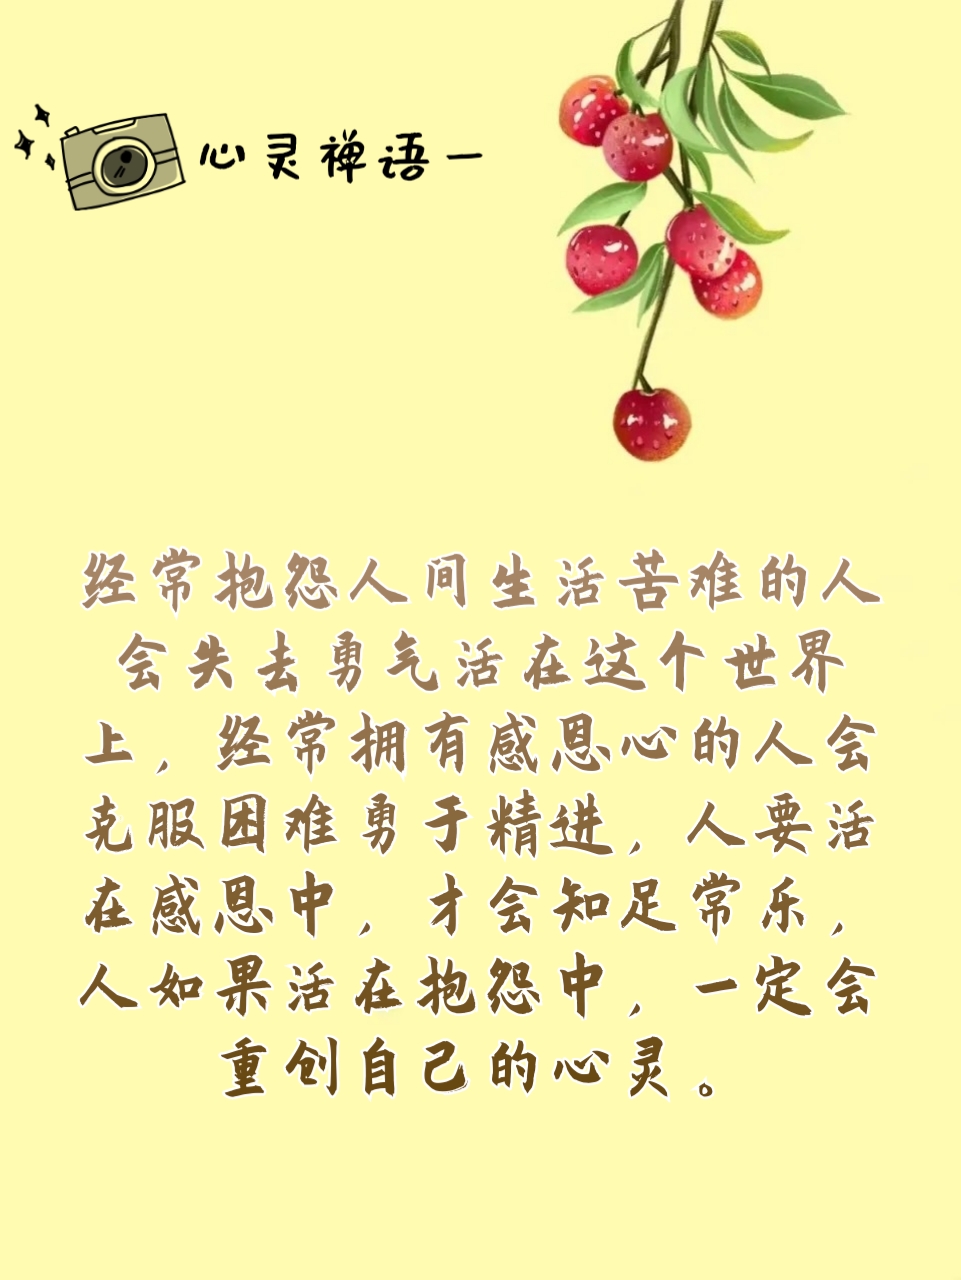 心灵禅语一
经常抱怨人间生活苦难的人
会失去勇气活在这个世界
上，经常拥有感恩心的人会
克服困难勇于精进，人要活
在感恩中，才会知足常乐，
人如果活在抱怨中，一定会
重创自己的心灵。